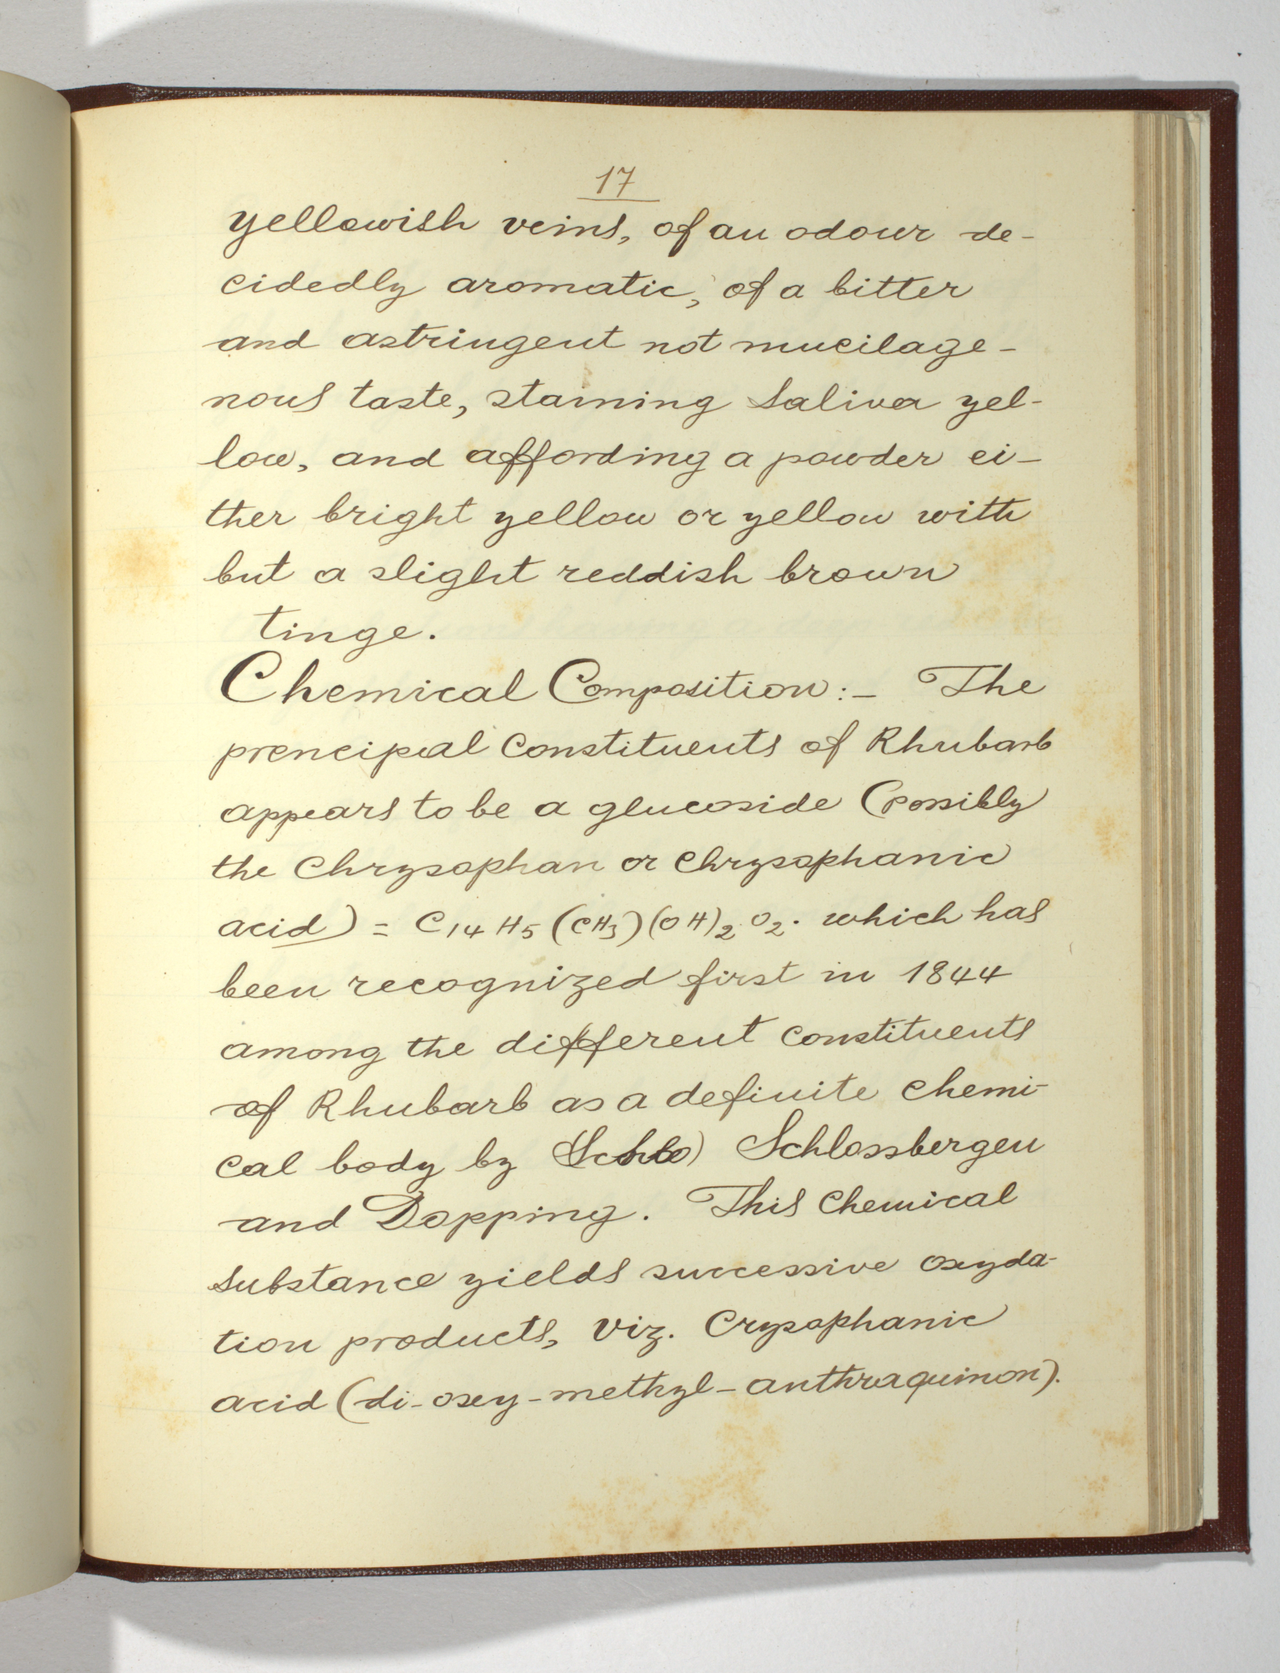 17
yellowish veins, of an odour de-
cidedly aromatic, of a bitter
and astringent not mucilage-
nous taste, staining saliva yel-
low, and affording a powder ei-
ther bright yellow or yellow with
but a slight reddish brown
tinge.
Chemical Composition:- The
prencipal constituents of Rhubarb
appears to be a glucoside (possibly
the Chrysophan or Chrysophanic
acid) = C14 H5 (CH3) (OH)2 O2. which has
been recognized first in 1844
among the different constituents
of Rhubarb as a definite chemi-
cal body by (Schlo) Schlossbergen
and Dopping. This Chemical
substance yields successive oxyda-
tion products, viz. Crysophanic
acid (di-oxy-methyl-anthraquinon).